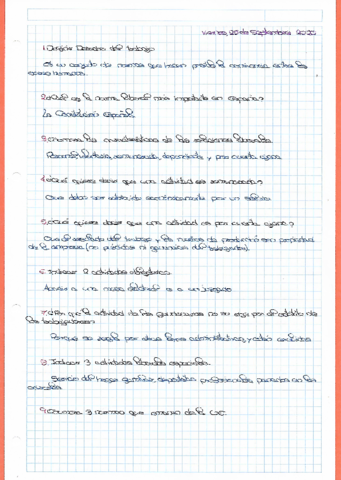 Martes, 20 de Septiembre 2022
1. Definir Derecho del trabajo
Es un conjunto de normas que hacen posible la convivencia entre los
seres humanos.
2. ¿Cuál es la norma laboral más importante en España?
La Constitución Española.
3. Enumera las características de las relaciones laborales
voluntaria, remunerada, dependiente, y por cuenta ajena.
4. ¿Qué quiere decir que una actividad es remunerada?
Que debe ser por un salario
5. ¿Qué quiere decir que una actividad es por cuenta ajena?
Que el resultado del trabajo y los medios de producción son propiedad
de la empresa (ni pérdidas ni ganancias del trabajador).
6. Indicar 2 actividades obligatorias.
Acudir a una mesa electoral o a un
7. ¿Por qué la actividad de los funcionarios no se rige por el
los trabajadores
Porque se regula por otras leyes administrativas, y están excluidos
8. Indicar 3 actividades laborales especiales.
Servicio del hogar familiar, deportistas profesionales, penados en las
9. Enumera 3 normas que de la UE.